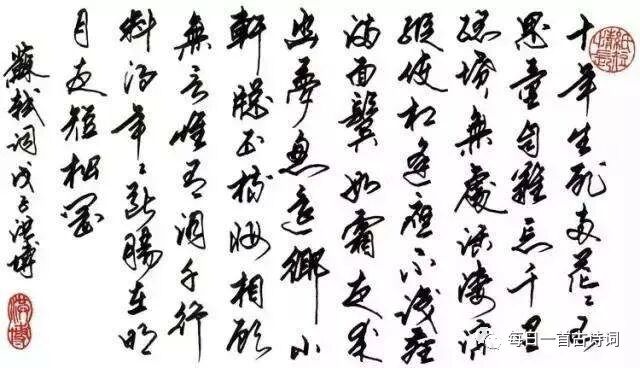 十年生死兩茫〻不
思量自難忘千里
孤墳無處話淒涼
縱使相逢應不識塵
滿面鬢如霜夜來
幽夢忽還鄉小
軒窗正梳妝相顧
無言惟有淚千行
料得年〻斷腸在明
月夜短松岡
蘇軾詞戊子洪博
洪博
每日一首古诗词